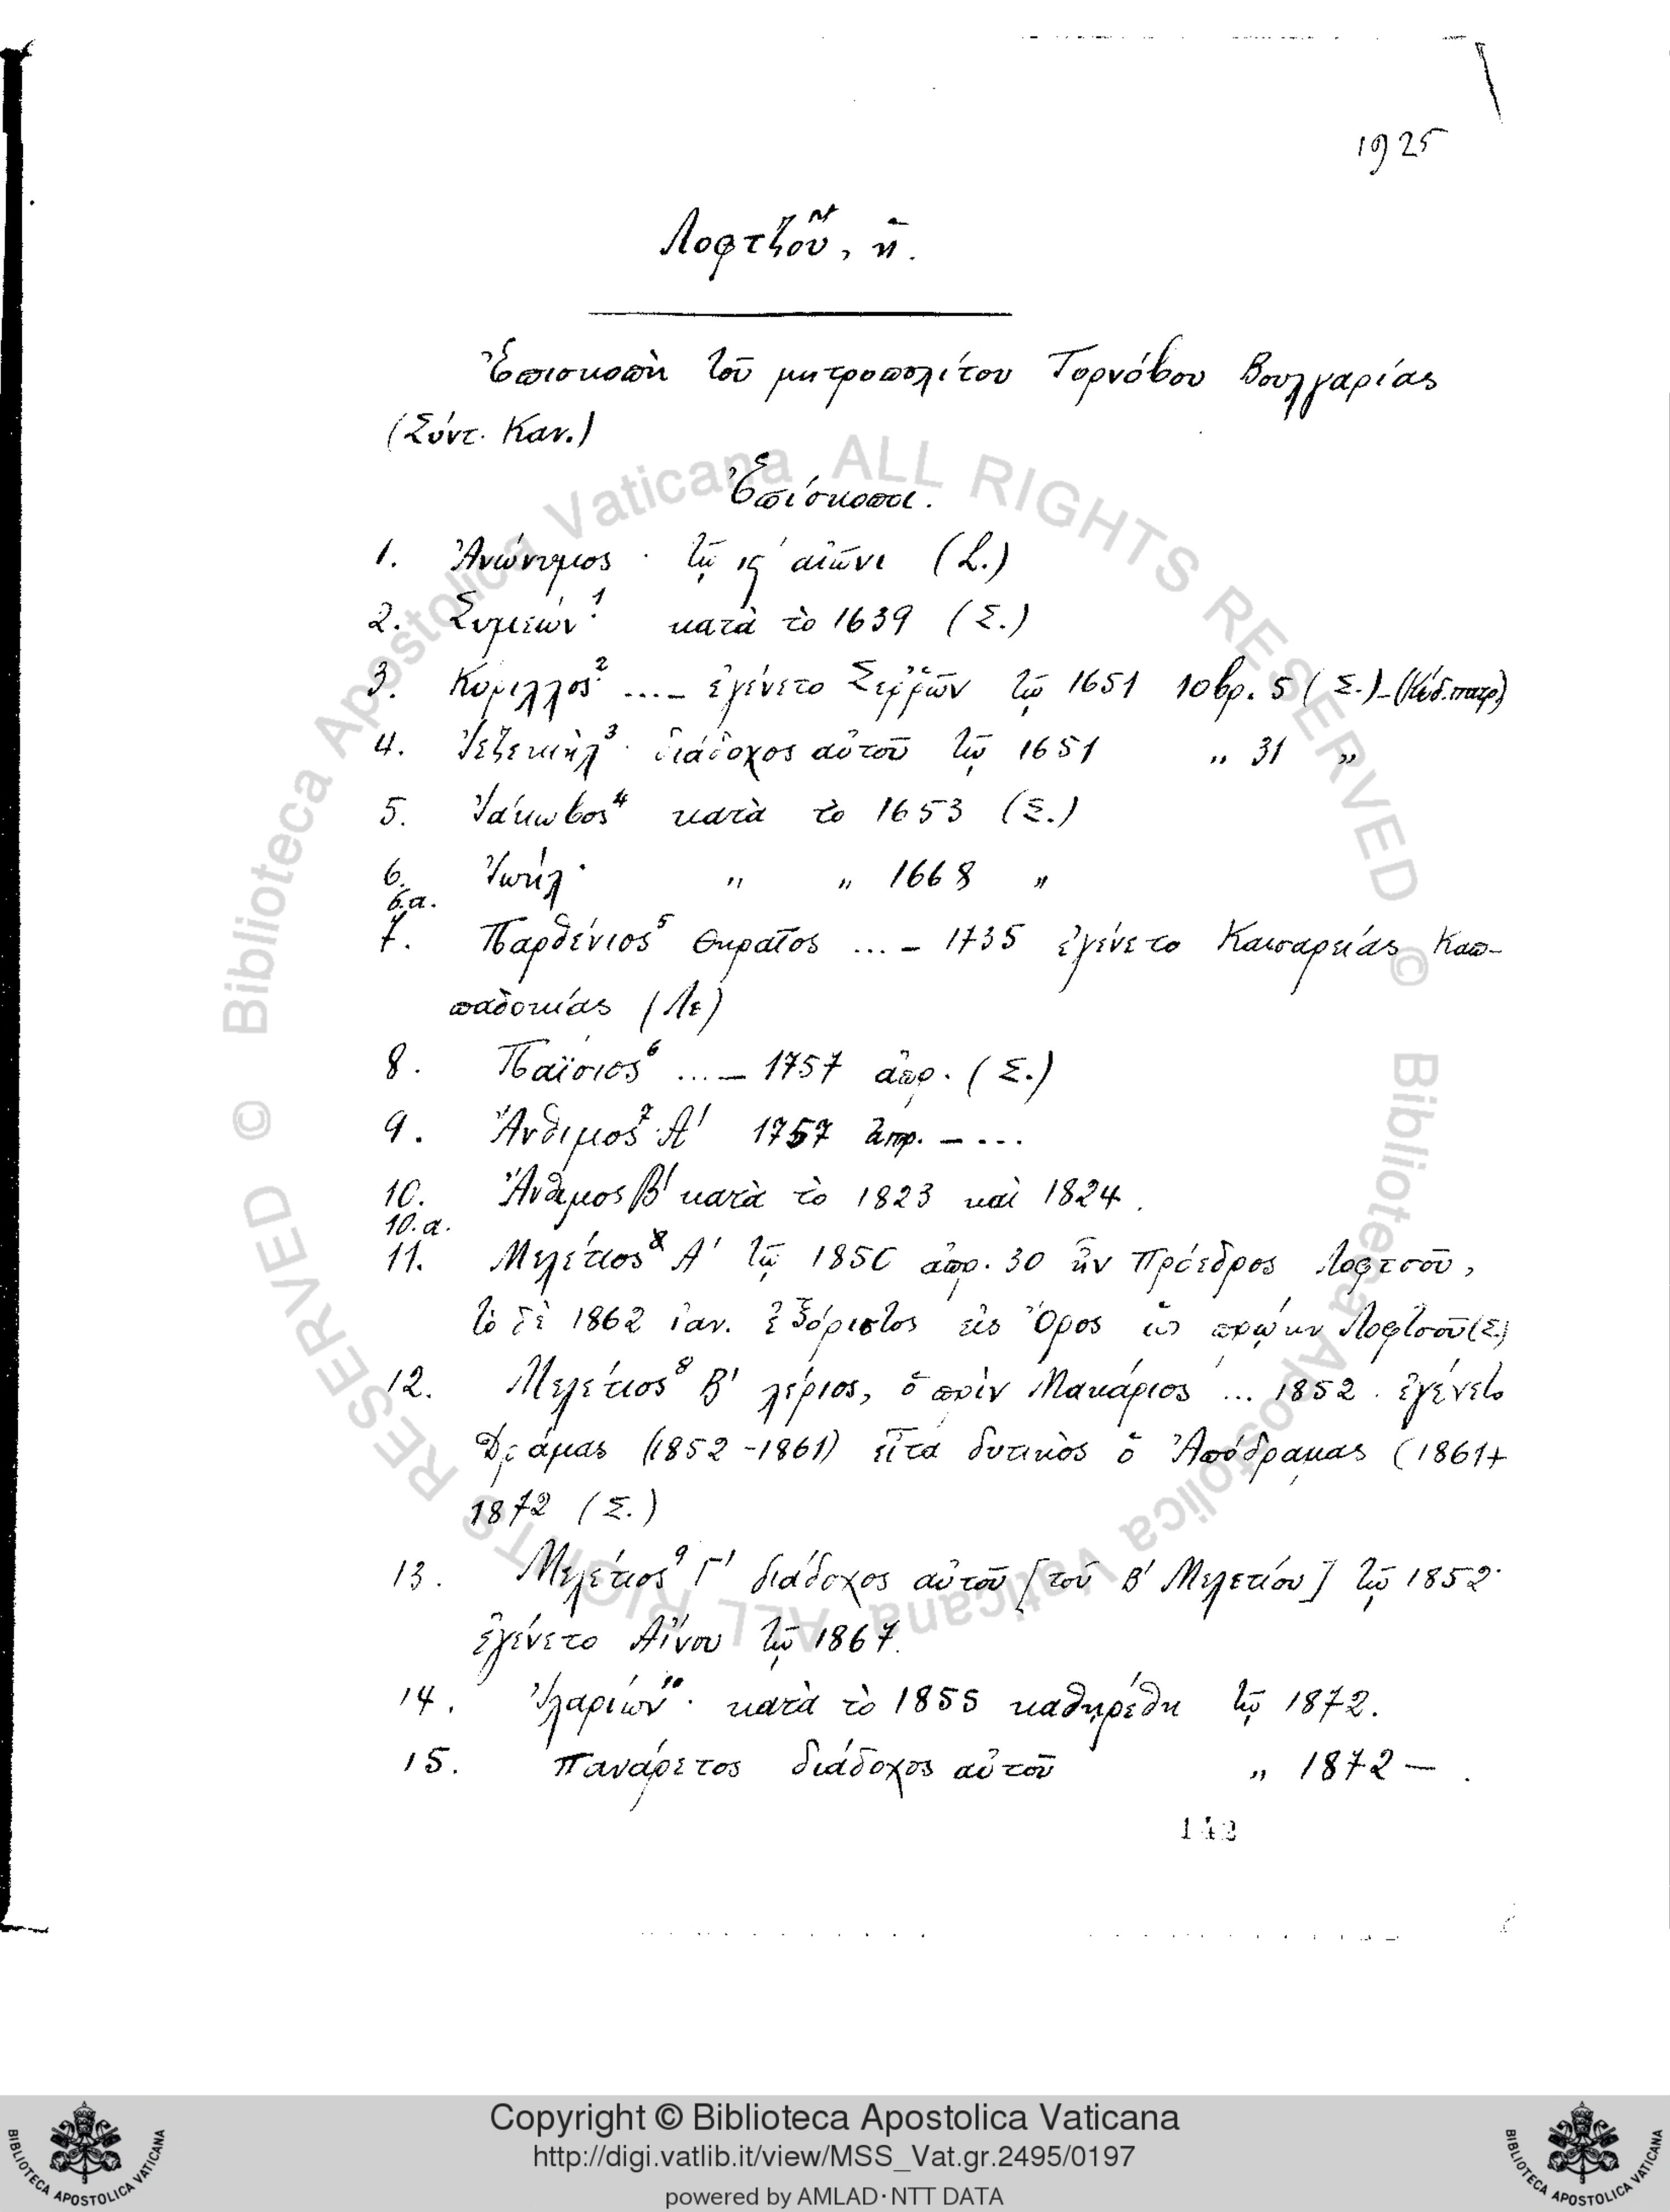 1925
Λοφτζοῦ, ἡ.
Ἐπισκοπὴ τοῦ μητροπολίτου Τορνόβου Βουλγαρίας
(Σύντ. Καν.)
Ἐπίσκοποι.
1. Ἀνώνυμος · τῷ ις΄ αἰῶνι (L.)
2. Συμεών¹· κατὰ τὸ 1639 (Σ.)
3. Κύριλλος² ...– ἐγένετο Σερρῶν τῷ 1651 10βρ. 5 (Σ.)–(Κώδ. πατρ.)
4. Ἰεζεκιὴλ³· διάδοχος αὐτοῦ τῷ 1651 „ 31 „
5. Ἰάκωβος⁴ κατὰ τὸ 1653 (Σ.)
6. Ἰωήλ· „ „ 1668 „
6.α.
7. Παρθένιος⁵ Θηραῖος ... – 1735 ἐγένετο Καισαρείας Καπ-
παδοκίας (Λε)
8. Παΐσιος⁶ ...– 1757 ἀπρ. (Σ.)
9. Ἄνθιμος⁷ Α΄ 1757 ἀπρ. – ...
10. Ἄνθιμος Β΄ κατὰ τὸ 1823 καὶ 1824.
10.α.
11. Μελέτιος⁸ Α΄ τῷ 1850 ἀπρ. 30 ἦν Πρόεδρος Λοφτσοῦ,
τὸ δὲ 1862 ἰαν. ἐξόριστος εἰς Ὄρος ὡς πρώην Λοφτσοῦ (Σ.)
12. Μελέτιος⁸ Β΄ λέριος, ὁ πρὶν Μακάριος ... 1852. ἐγένετο
Δράμας (1852–1861) εἶτα δυτικὸς ὁ Ἀπόδραμας (1861+
1872 (Σ.)
13. Μελέτιος⁹ Γ΄ διάδοχος αὐτοῦ [τοῦ Β΄ Μελετίου] τῷ 1852·
ἐγένετο Αἴνου τῷ 1867.
14. Ἱλαρίων¹⁰· κατὰ τὸ 1855 καθῃρέθη τῷ 1872.
15. Πανάρετος διάδοχος αὐτοῦ „ 1872 – .
142
© Biblioteca Apostolica Vaticana ALL RIGHTS RESERVED
© Biblioteca Apostolica Vaticana ALL RIGHTS RESERVED
Copyright © Biblioteca Apostolica Vaticana
http://digi.vatlib.it/view/MSS_Vat.gr.2495/0197
powered by AMLAD·NTT DATA
BIBLIOTECA APOSTOLICA VATICANA
BIBLIOTECA APOSTOLICA VATICANA